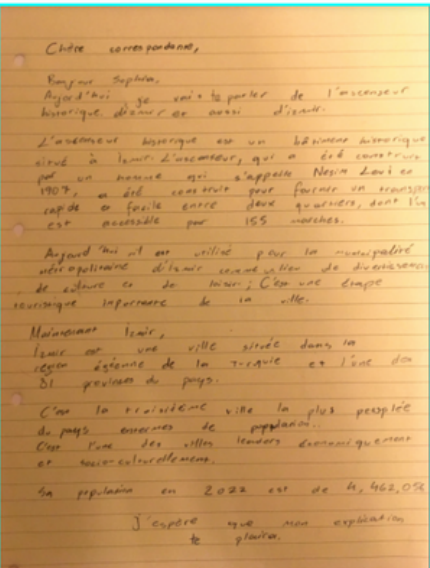 Chère correspondante,
Bonjour Sophia,
Aujord'hui je vais te parler de l'ascenseur
historique d'izmir et aussi d'izmir.
L'ascenseur historique est un bâtiment historique
situé à Izmir. L'ascenseur, qui a été construit
par un homme qui s'appelle Nesim Levi en
1907, a été construit pour fournir un transport
rapide et facile entre deux quartiers, dont l'un
est accessible par 155 marches.
Aujord'hui il est utilisé par la municipalité
métropolitaine d'Izmir comme un lieu de divertissement
de culture et de loisir; C'est une étape
touristique importante de la ville.
Maintenant Izmir,
Izmir est une ville située dans la
région égéenne de la Turquie et l'une des
81 provinces du pays.
C'est la troisième ville la plus peuplée
du pays en termes de population.
C'est l'une des villes leaders économiquement
et socio-culturellement.
Sa population en 2022 est de 4,462,056
J'espère que mon explication
te plaira.